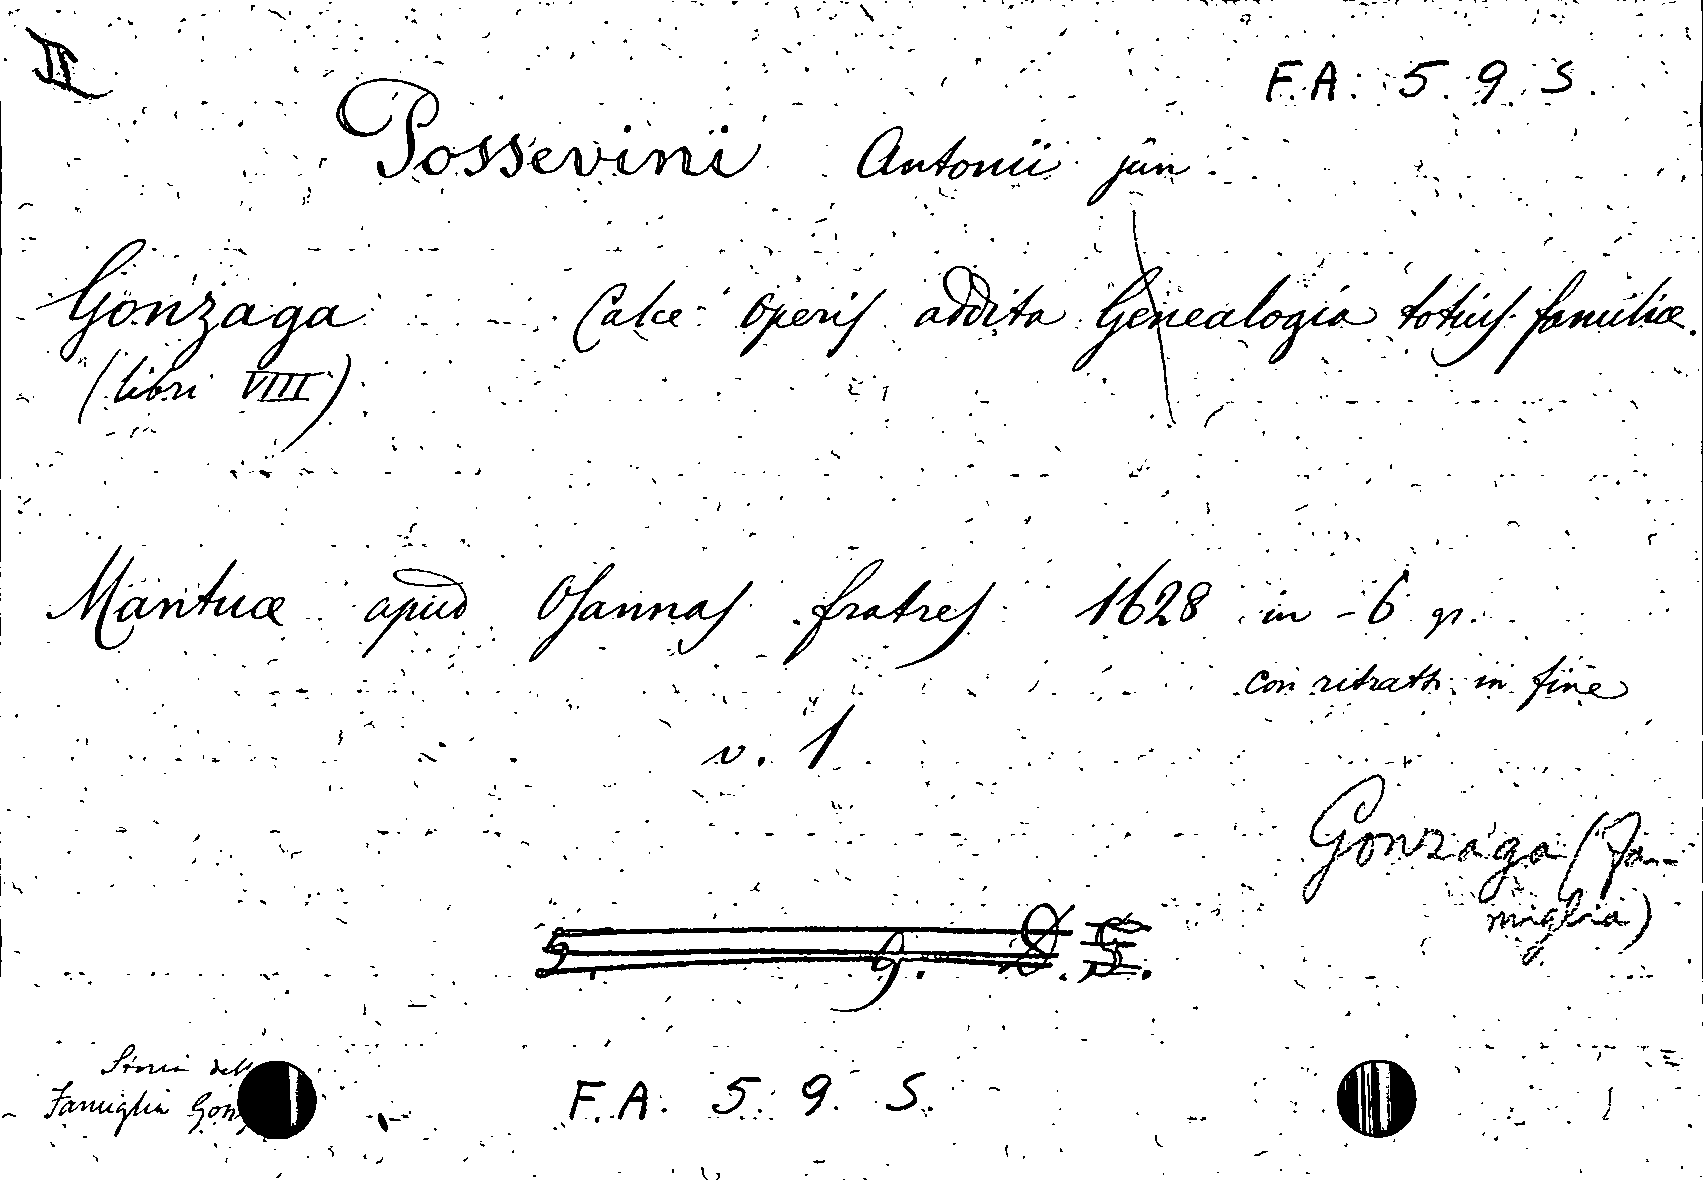 II
F. A. 5. 9. S.
Possevini Antonii jun
Gonzaga Calce operis addita Genealogia totius familiæ.
(libri VIIII)
Mantuæ apud Osannas fratres 1628 in-6 gr.
con ritratti in fine
v. 1
Gonzaga (Fa-
miglia)
5. 9.
Storia dell
Famiglia Gonz
F. A. 5. 9. S.